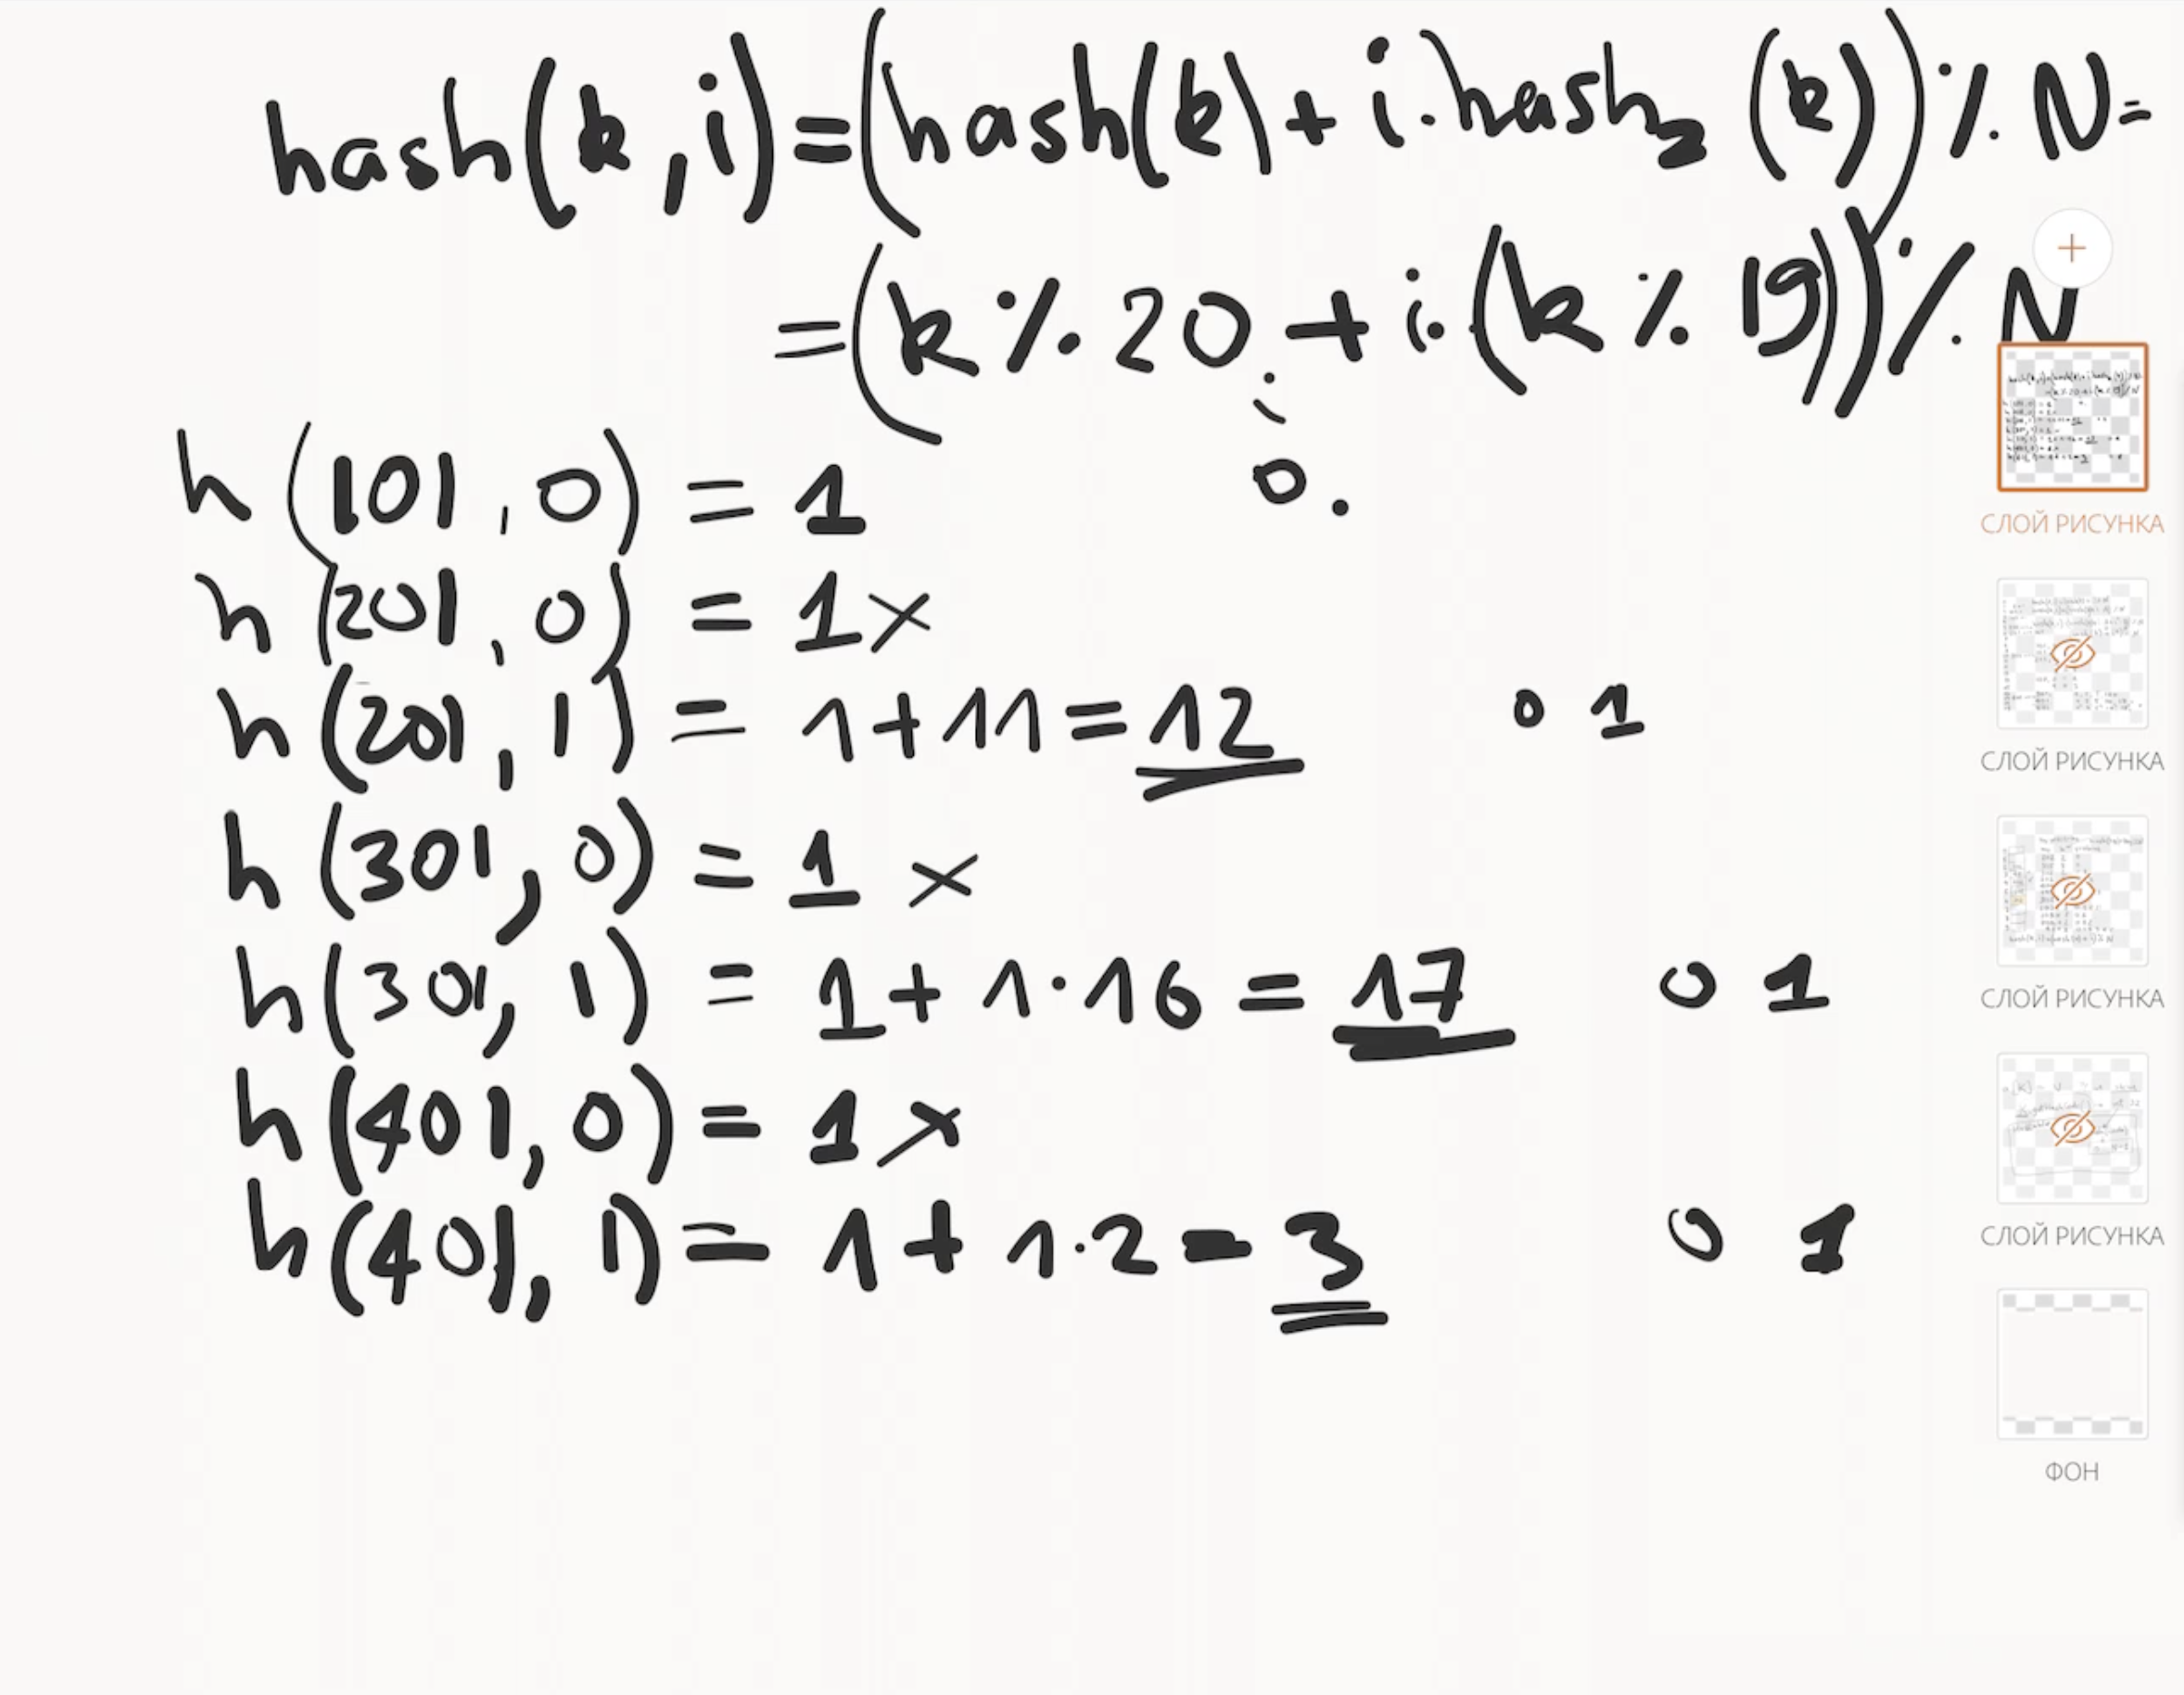 hash(k,i)=(hash(k)+i·hash₂(k))%N=
=(k%20+i·(k%19))%N
i
h(101,0)=1
0.
h(201,0)=1×
h(201,1)=1+11=12 0 1
h(301,0)=1×
h(301,1)=1+1·16=17 0 1
h(401,0)=1×
h(401,1)=1+1·2=3 0 1
+
СЛОЙ РИСУНКА
СЛОЙ РИСУНКА
СЛОЙ РИСУНКА
СЛОЙ РИСУНКА
ФОН